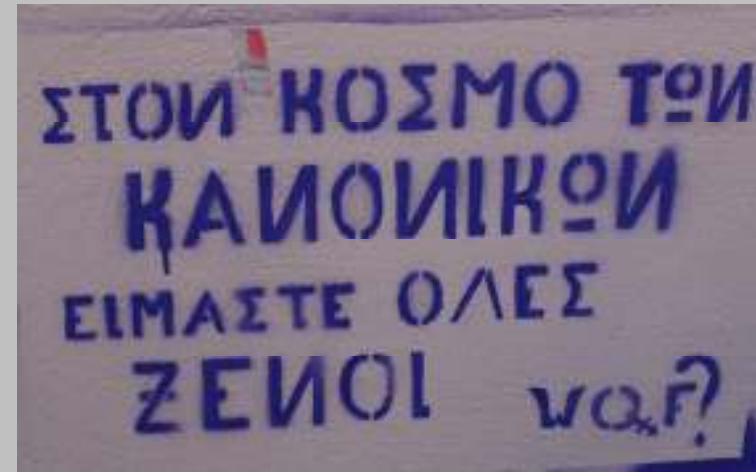 ΣΤΟΝ ΚΟΣΜΟ ΤΩΝ
ΚΑΝΟΝΙΚΩΝ
ΕΙΜΑΣΤΕ ΟΛΕΣ
ΞΕΝΟΙ WQF?